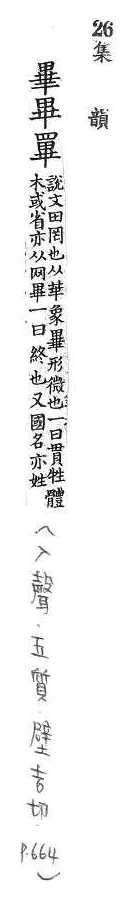 26集韻
畢𤰞罼
說文田罔也从𠦒象畢形微也一曰貫牲體
木或省亦从网畢一曰終也又國名亦姓
(入聲.五質.壁吉切.P.664)